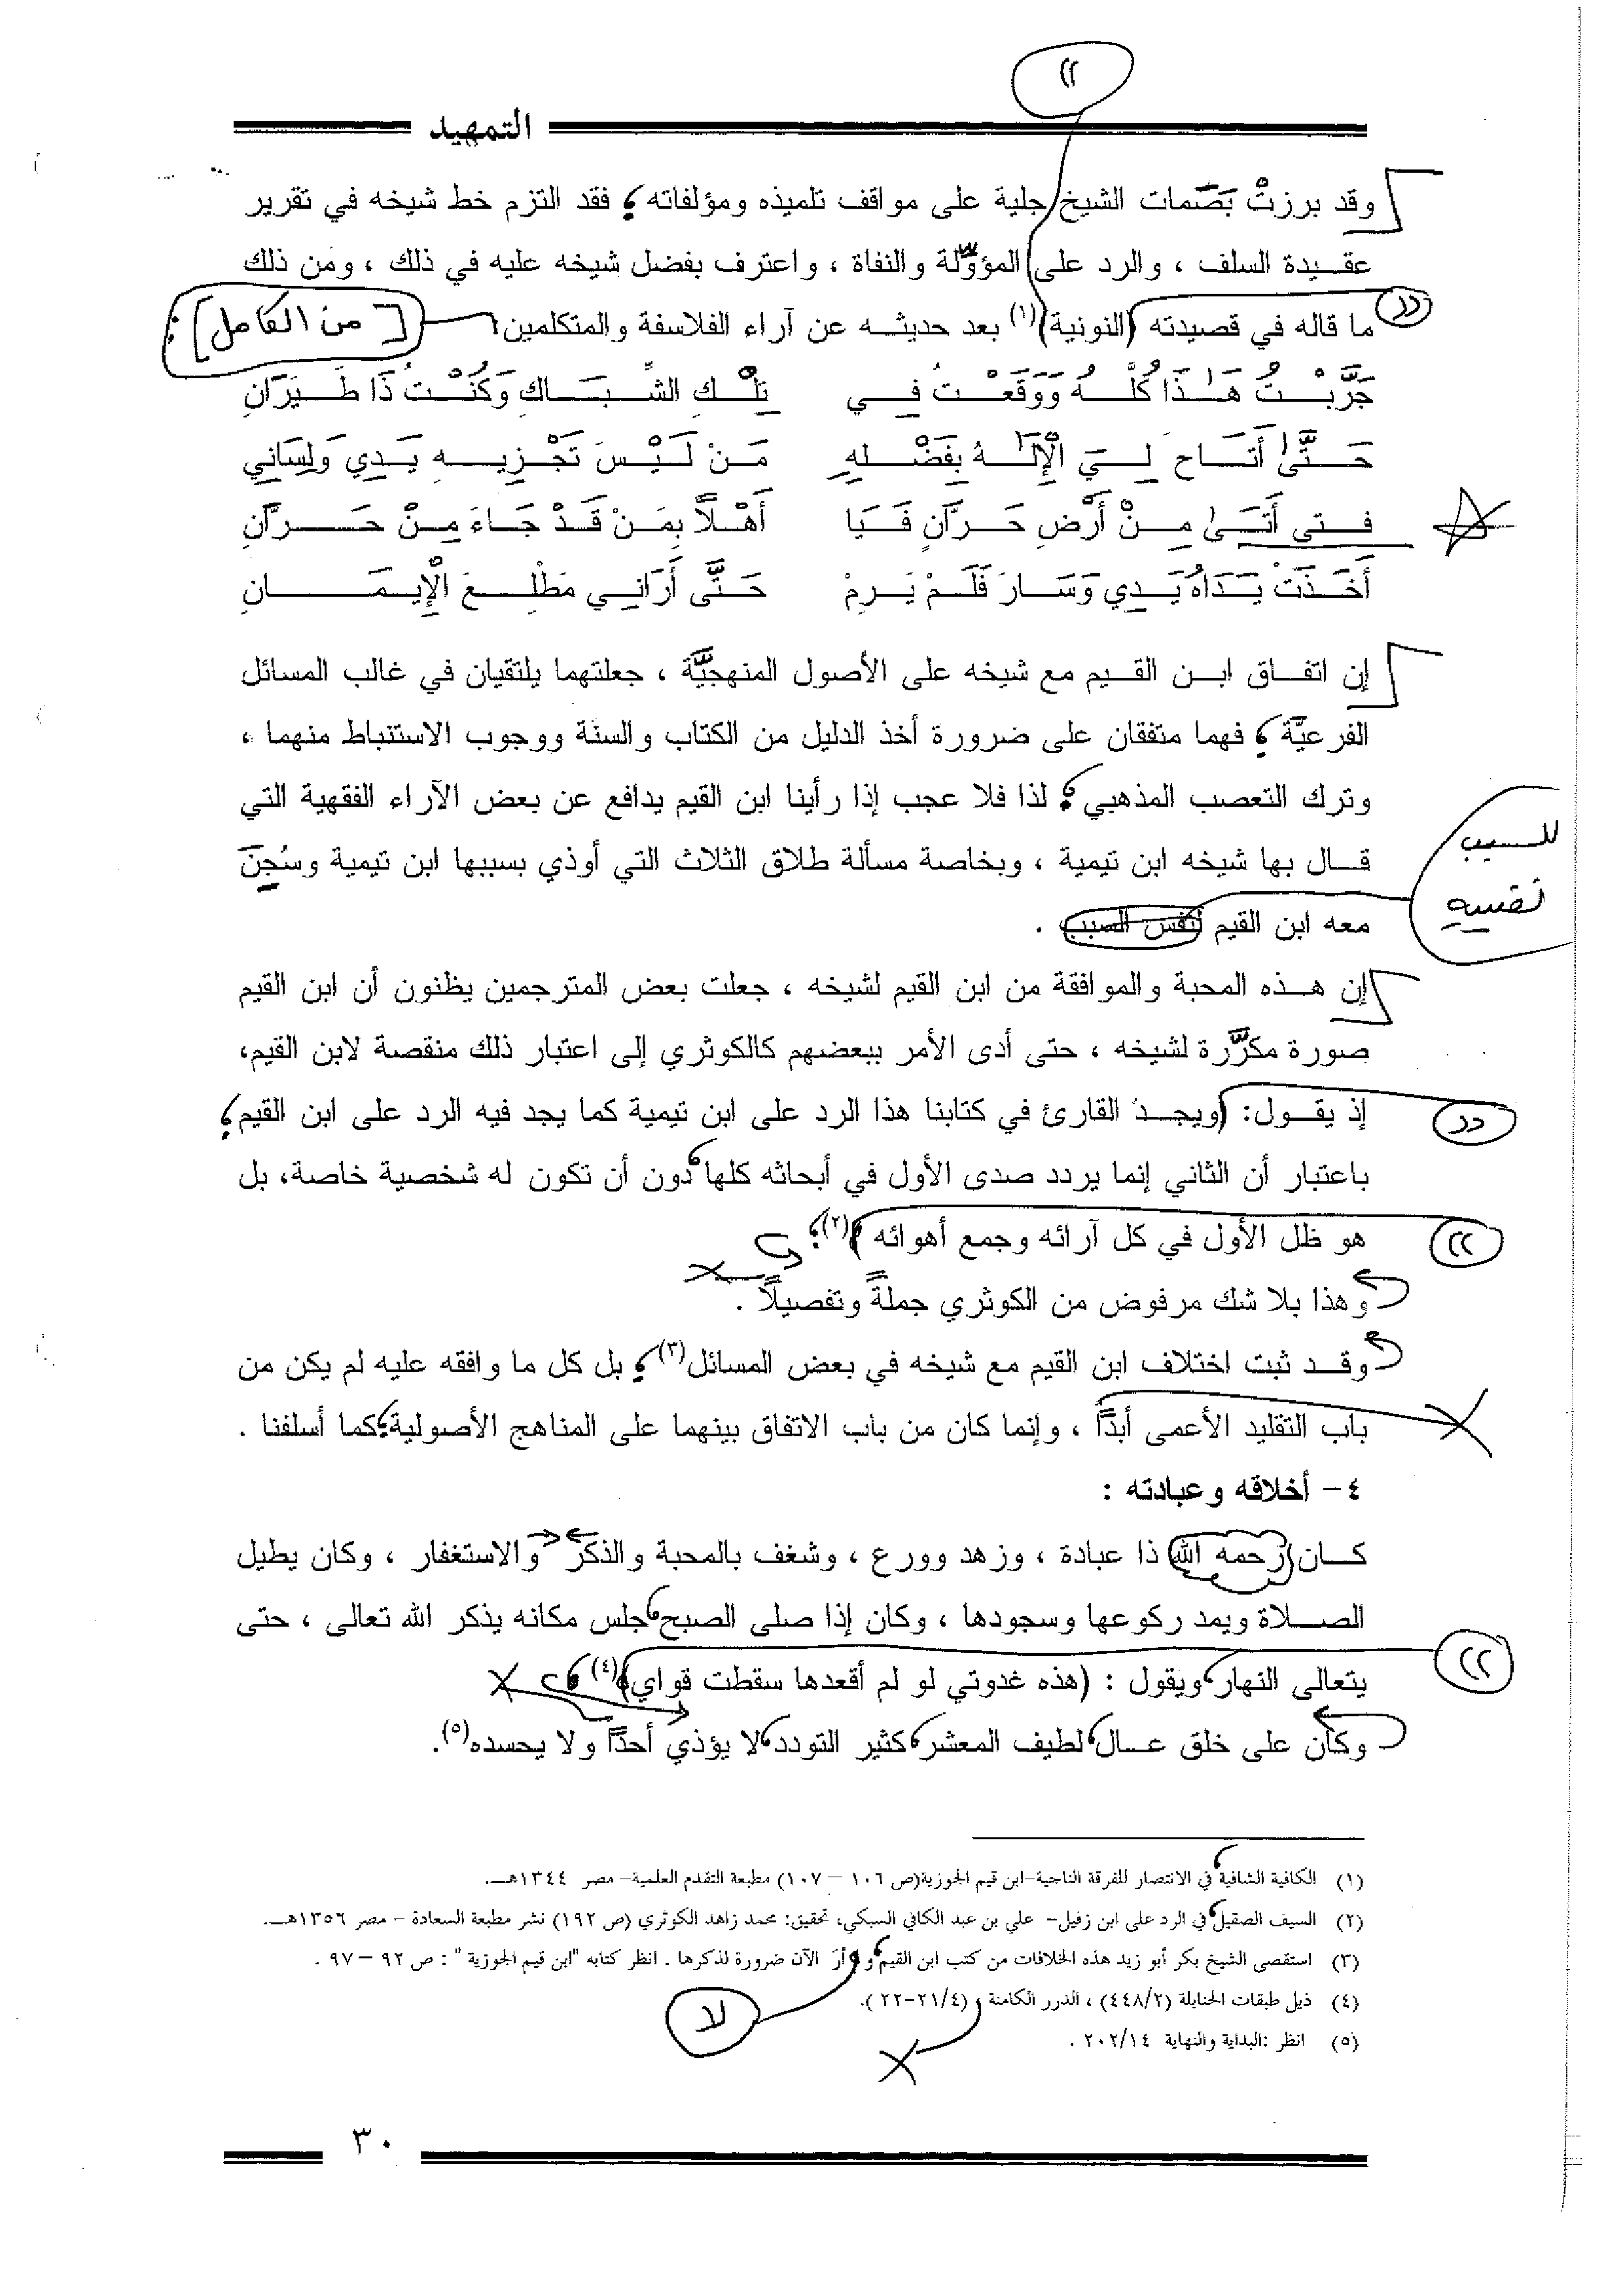 التمهيد
وقد برزتْ بَصَمات الشيخ جلية على مواقف تلميذه ومؤلفاته ؛ فقد التزم خط شيخه في تقرير
عقيدة السلف ، والرد على المؤوِّلة والنفاة ، واعترف بفضل شيخه عليه في ذلك ، ومن ذلك
ما قاله في قصيدته (النونية)(١) بعد حديثه عن آراء الفلاسفة والمتكلمين [من الكامل]:
جَرَّبْتُ هَذَا كُلَّهُ وَوَقَعْتُ فِي تِلْكَ الشِّبَاكِ وَكُنْتُ ذَا طَيَرَانِ
حَتَّى أَتَاحَ لِيَ الْإِلَهُ بِفَضْلِهِ مَنْ لَيْسَ تَجْزِيهِ يَدِي وَلِسَانِي
فتى أَتَى مِنْ أَرْضِ حَرَّانٍ فَيَا أَهْلاً بِمَنْ قَدْ جَاءَ مِنْ حَرَّانِ
أَخَذَتْ يَدَاهُ يَدِي وَسَارَ فَلَمْ يَرِمْ حَتَّى أَرَانِي مَطْلِعَ الْإِيمَانِ
إن اتفاق ابن القيم مع شيخه على الأصول المنهجيَّة ، جعلتهما يلتقيان في غالب المسائل
الفرعيَّة ؛ فهما متفقان على ضرورة أخذ الدليل من الكتاب والسنة ووجوب الاستنباط منهما ،
وترك التعصب المذهبي ؛ لذا فلا عجب إذا رأينا ابن القيم يدافع عن بعض الآراء الفقهية التي
قال بها شيخه ابن تيمية ، وبخاصة مسألة طلاق الثلاث التي أوذي بسببها ابن تيمية وسُجِنَ
للسبب
نفسه
معه ابن القيم لنفس السبب .
إن هذه المحبة والموافقة من ابن القيم لشيخه ، جعلت بعض المترجمين يظنون أن ابن القيم
صورة مكرَّرة لشيخه ، حتى أدى الأمر ببعضهم كالكوثري إلى اعتبار ذلك منقصة لابن القيم،
إذ يقول: (ويجد القارئ في كتابنا هذا الرد على ابن تيمية كما يجد فيه الرد على ابن القيم؛
باعتبار أن الثاني إنما يردد صدى الأول في أبحاثه كلها دون أن تكون له شخصية خاصة، بل
هو ظل الأول في كل آرائه وجمع أهوائه )(٢).
وهذا بلا شك مرفوض من الكوثري جملةً وتفصيلاً .
وقد ثبت اختلاف ابن القيم مع شيخه في بعض المسائل(٣)؛ بل كل ما وافقه عليه لم يكن من
باب التقليد الأعمى أبدًا ، وإنما كان من باب الاتفاق بينهما على المناهج الأصولية كما أسلفنا .
٤- أخلاقه وعبادته :
كان (رحمه الله) ذا عبادة ، وزهد وورع ، وشغف بالمحبة والذكر والاستغفار ، وكان يطيل
الصلاة ويمد ركوعها وسجودها ، وكان إذا صلى الصبح جلس مكانه يذكر الله تعالى ، حتى
يتعالى النهار ويقول : (هذه غدوتي لو لم أقعدها سقطت قواي)(٤)
وكان على خلق عال لطيف المعشر كثير التودد لا يؤذي أحدًا ولا يحسده(٥).
(١) الكافية الشافية في الانتصار للفرقة الناجية-ابن قيم الجوزية(ص ١٠٦ – ١٠٧) مطبعة التقدم العلمية- مصر ١٣٤٤هـ.
(٢) السيف الصقيل في الرد على ابن زفيل- علي بن عبد الكافي السبكي، تحقيق: محمد زاهد الكوثري (ص ١٩٢) نشر مطبعة السعادة - مصر ١٣٥٦هـ.
(٣) استقصى الشيخ بكر أبو زيد هذه الخلافات من كتب ابن القيم و أرَ الآن ضرورة لذكرها . انظر كتابه "ابن قيم الجوزية " : ص ٩٢ – ٩٧ .
لا
(٤) ذيل طبقات الحنابلة (٤٤٨/٢) ، الدرر الكامنة (٢١/٤-٢٢ ).
(٥) انظر :البداية والنهاية ٢٠٢/١٤ .
٣٠